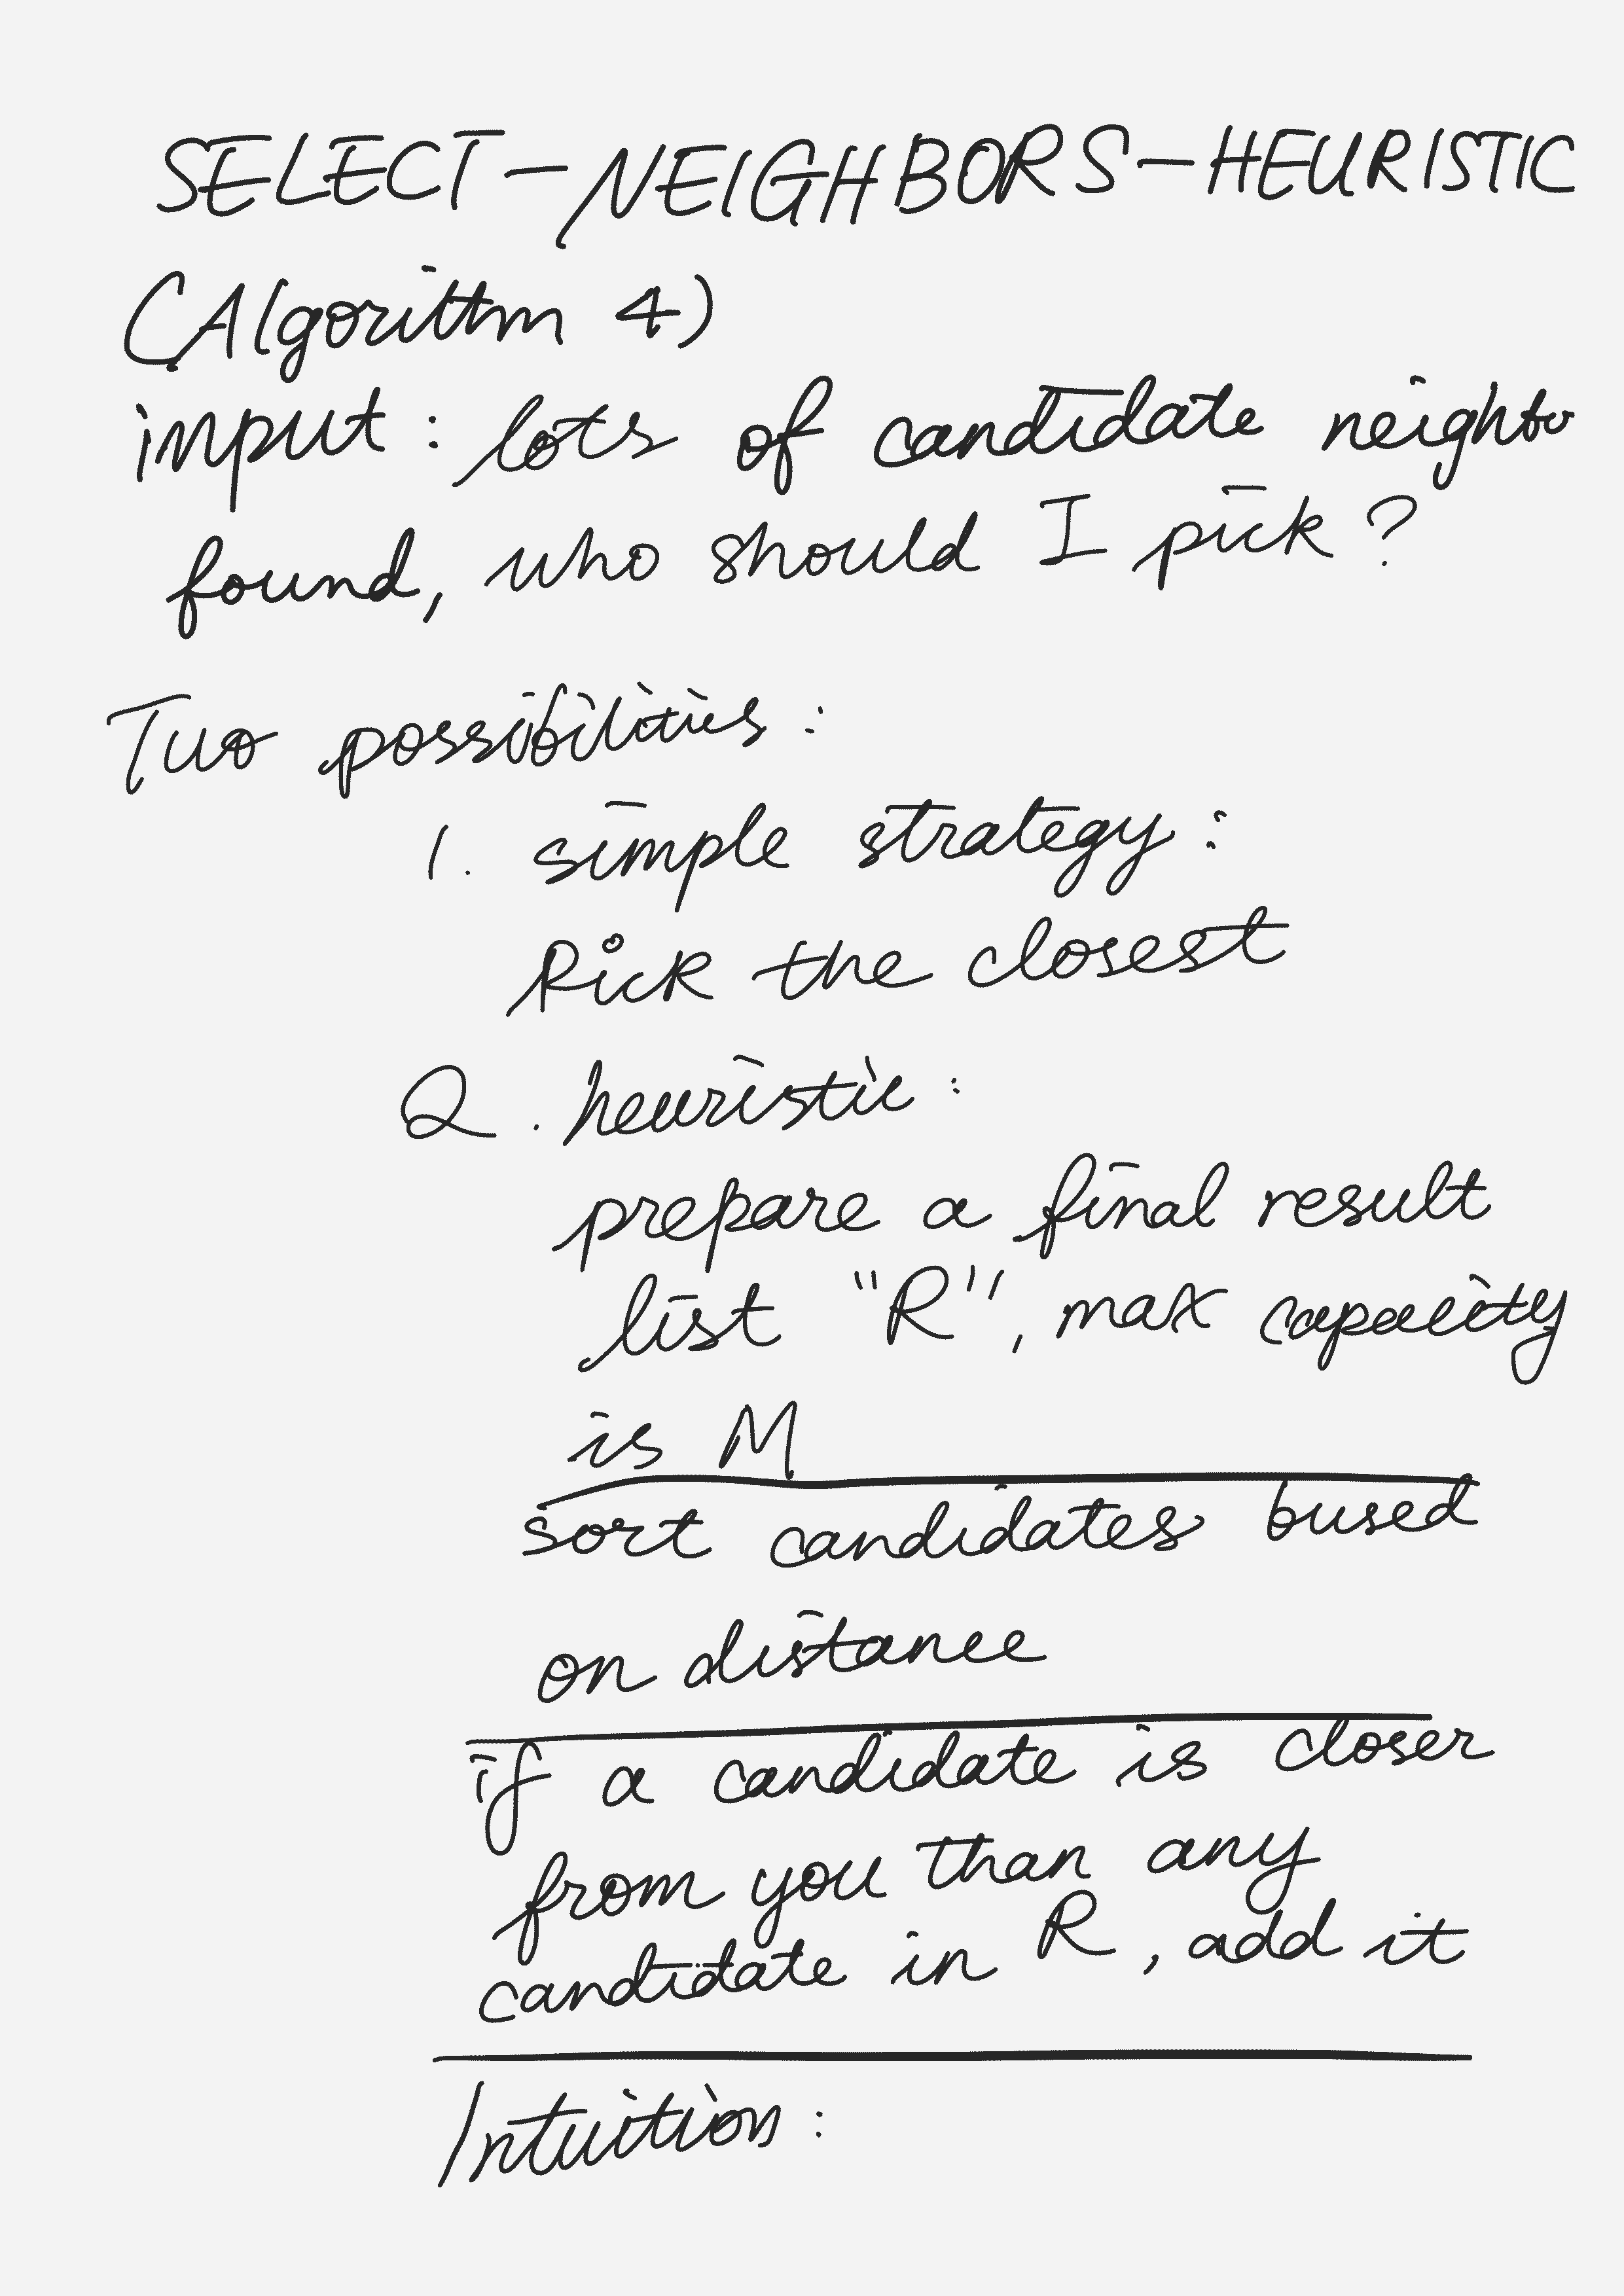 SELECT-NEIGHBORS-HEURISTIC
(Algorithm 4)
input: lots of candidate neighbo
found, who should I pick?
Two possibilities:
1. simple strategy:
Pick the closest
2. heuristic:
prepare a final result
list "R", max capacity
is M
sort candidates bused
on distance
if a candidate is closer
from you than any
candidate in R, add it
Intuition: